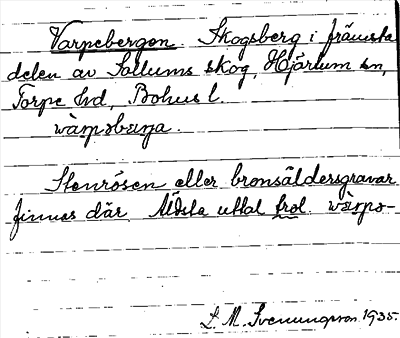 Varpebergen. Skogsberg i främsta
delen av Sollums skog, Hjärtum sn,
Torpe hd, Bohus l.
wàrpəbærja.
Stenrösen eller bronsåldersgravar
finnes där. Äldsta uttal trol. wàrpə-
L. M. Svenungsson 1935.